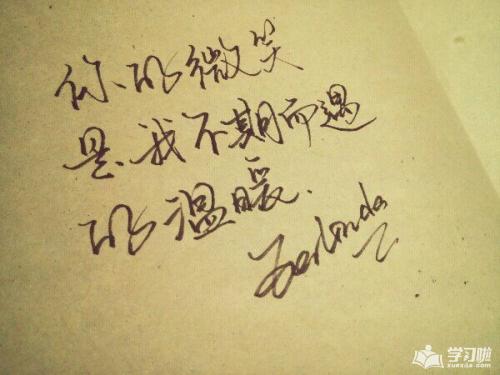 你的微笑
是我不期而遇
的温暖.
学习啦
xuexila.com